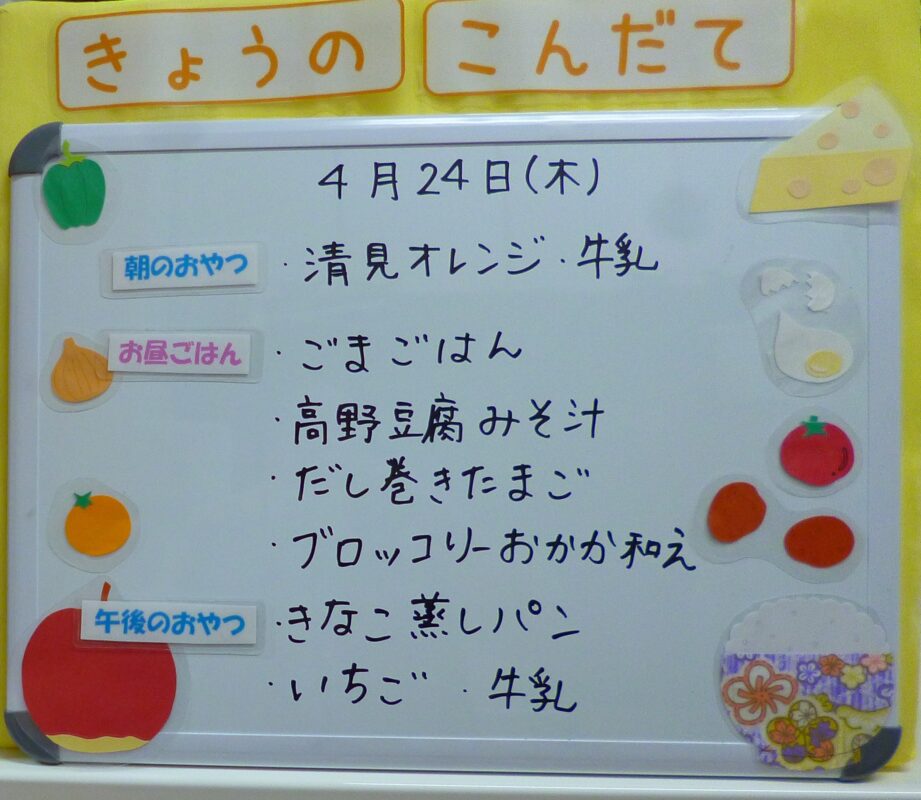 きょうの こんだて
4月24日(木)
朝のおやつ ・清見オレンジ・牛乳
お昼ごはん ・ごまごはん
・高野豆腐みそ汁
・だし巻きたまご
・ブロッコリーおかか和え
午後のおやつ ・きなこ蒸しパン
・いちご ・牛乳